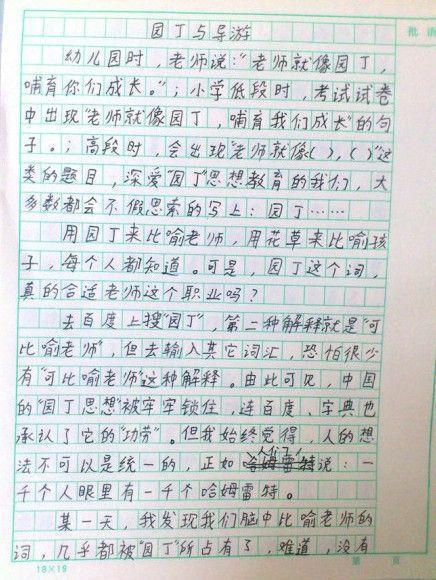 批语
园丁与导游
幼儿园时，老师说："老师就像园丁，
哺育你们成长。"；小学低段时，考试试卷
中出现"老师就像园丁，哺育我们成长"的句
子。；高段时，会出现"老师就像( )，( )"这
类的题目，深爱"园丁"思想教育的我们，大
多数都会不假思索的写上：园丁……
用园丁来比喻老师，用花草来比喻孩
子，每个人都知道。可是，园丁这个词，
真的合适老师这个职业吗？
去百度上搜"园丁"，第二种解释就是"可
比喻老师"，但去输入其它词汇，恐怕很少
有"可比喻老师"这种解释。由此可见，中国
的"园丁思想"被牢牢锁住，连百度、字典也
承认了它的"功劳"。但我始终觉得，人的想
法不可以是统一的，正如人们说：一
千个人眼里有一千个哈姆雷特。
某一天，我发现我们脑中比喻老师的
词，几乎都被"园丁"所占有了，难道，没有
18×19
第 页